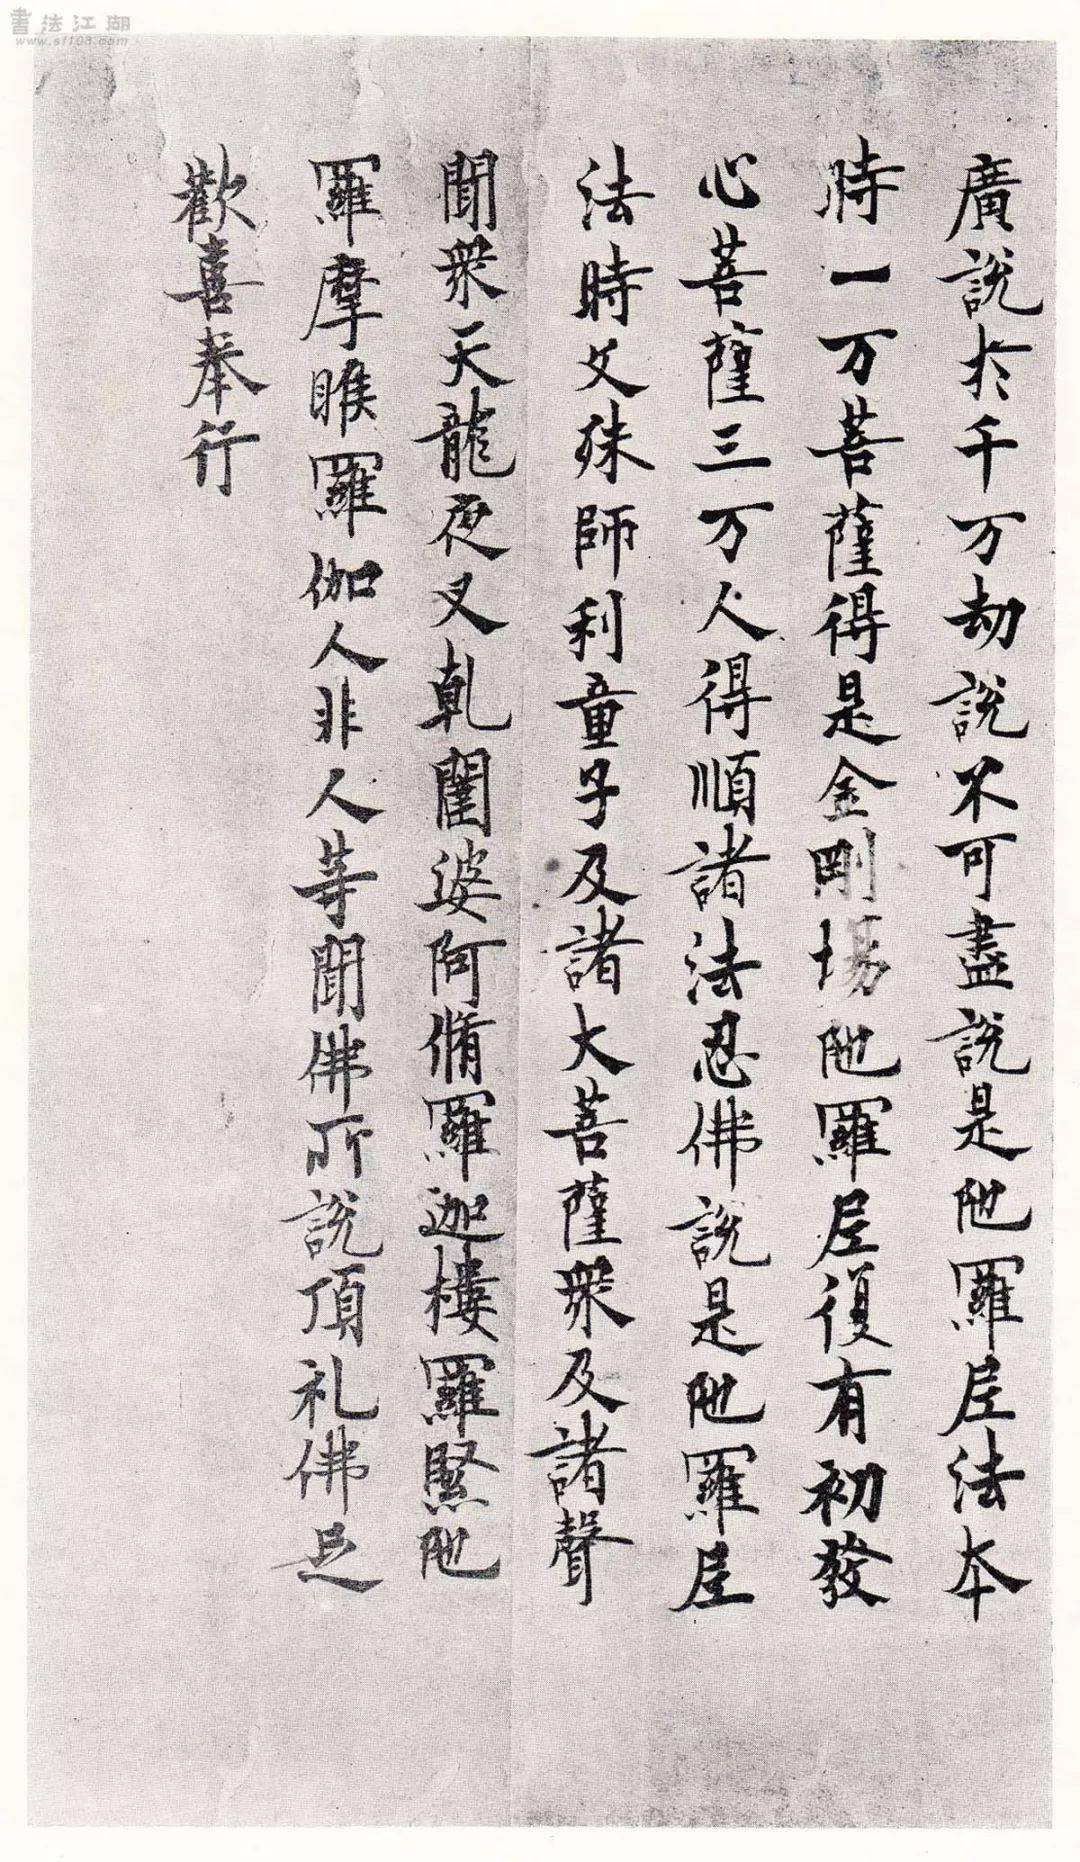 書法江湖
www.sf108.com
廣說於千万劫說不可盡說是陁羅尼法本
時一万菩薩得是金剛場陁羅尼復有初發
心菩薩三万人得順諸法忍佛說是陁羅尼
法時文殊師利童子及諸大菩薩衆及諸聲
聞衆天龍夜叉乹闥婆阿脩羅迦樓羅緊陁
羅摩睺羅伽人非人等聞佛所說頂礼佛足
歡喜奉行